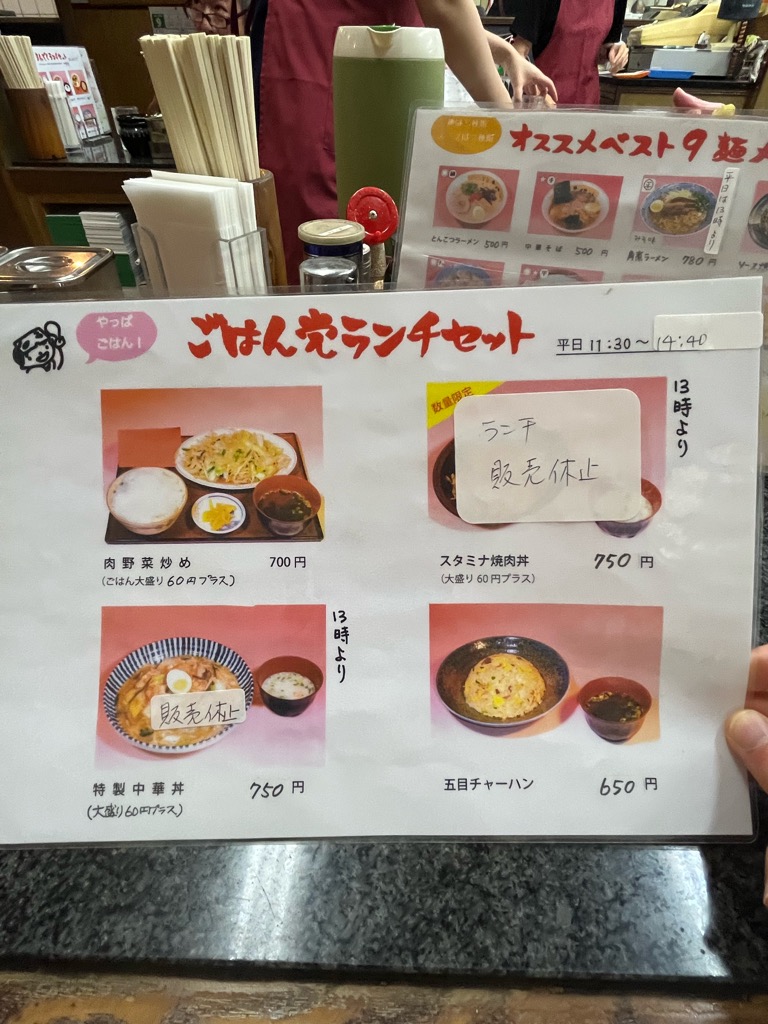 オススメベスト9麺
とんこつラーメン 500円
中華そば 500円
角煮ラーメン 780円
平日は13時より
やっぱ
ごはん!
ごはん党ランチセット
平日 11:30〜14:40
肉野菜炒め 700円
(ごはん大盛り60円プラス)
数量限定
ランチ
販売休止
13時より
スタミナ焼肉丼 750円
(大盛り60円プラス)
販売休止
13時より
特製中華丼 750円
(大盛り60円プラス)
五目チャーハン 650円